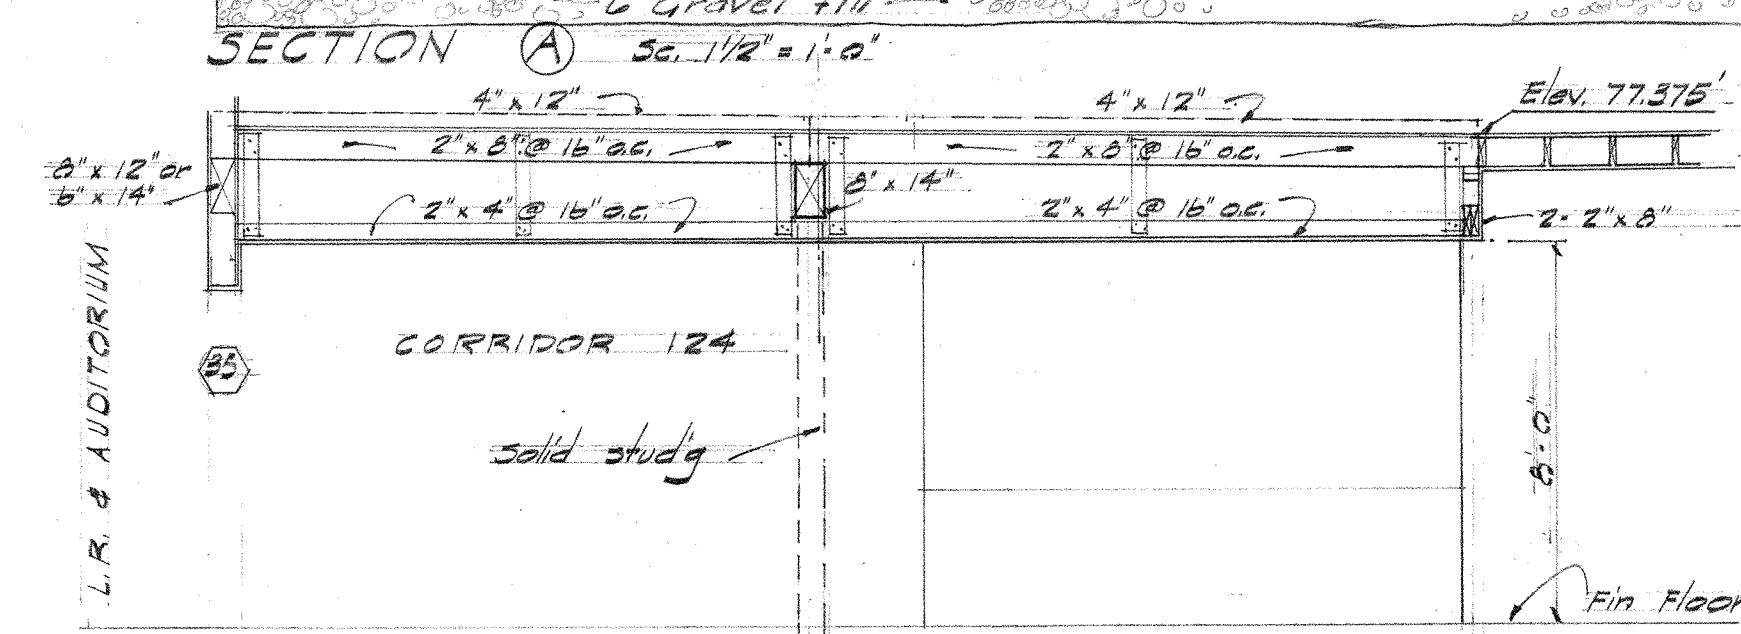 6" Gravel fill
SECTION A Sc. 1 1/2" = 1'-0"
4" x 12"
4" x 12"
Elev. 77.375'
2" x 8" @ 16" o.c.
2" x 8" @ 16" o.c.
8" x 12" or
6" x 14"
8" x 14"
2" x 4" @ 16" o.c.
2" x 4" @ 16" o.c.
2- 2" x 8"
L.R. & AUDITORIUM
CORRIDOR 124
35
Solid stud'g
8'-0"
Fin Floor